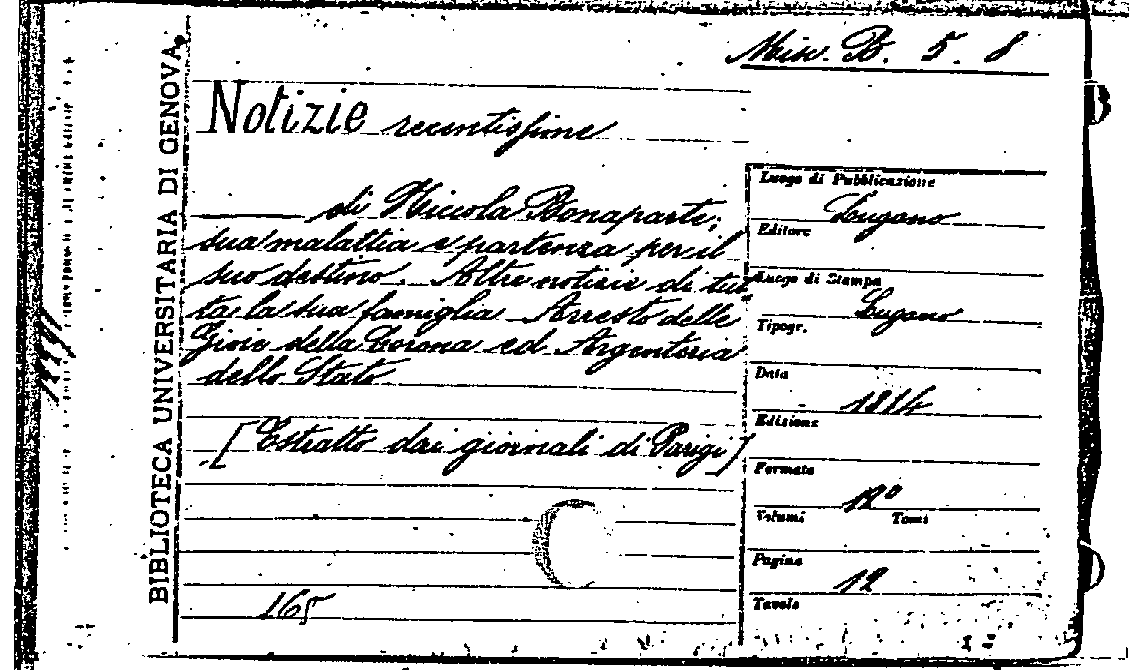 Misc. B. 5. 8
BIBLIOTECA UNIVERSITARIA DI GENOVA
Notizie recentissime
di Niccola Bonaparte;
sua malattia e partenza per il
suo destino. Altre notizie di tut-
ta la sua famiglia Arresto delle
Gioie della Corona ed Argenteria
dello Stato
[Estratto dai giornali di Parigi]
165
Luogo di Pubblicazione
Lugano
Editore
Luogo di Stampa
Lugano
Tipogr.
Data
1814
Edizione
Formato
12º
Volumi Tomi
Pagine
12
Tavole